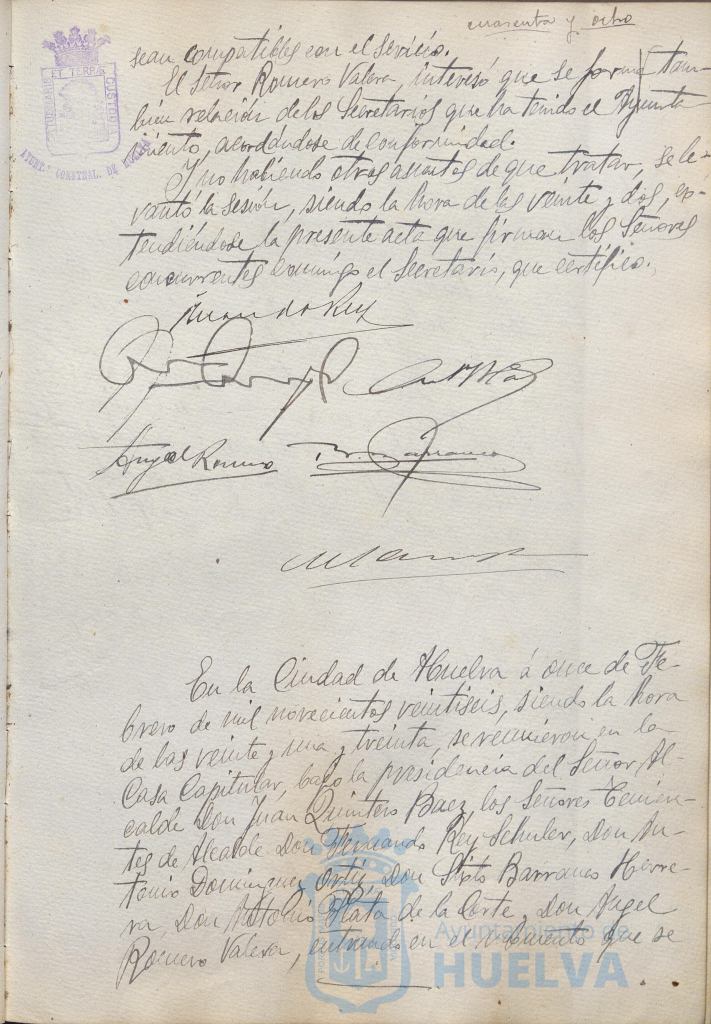 cuarenta y ocho
sean compatibles con el servicio.
El Señor Romero Valera, interesó que se forme tam-
bien relación de los Secretarios que ha tenido el Ayunta
miento, acordándose de conformidad.
Y no habiendo otros asuntos de que tratar, se le-
vantó la sesión, siendo la hora de las veinte y dos, ex-
tendiéndose la presente acta que firman los Señores
concurrentes conmigo el Secretario, que certifico.
Fernando Rey
Angel Romero
S. Barranco
En la Ciudad de Huelva á once de Fe-
brero de mil novecientos veintiseis, siendo la hora
de las veinte y una y treinta, se reunieron en la
Casa Capitular, bajo la presidencia del Señor Al-
calde Don Juan Quintero Baez, los Señores Tenien-
tes de Alcalde Don Fernando Rey Schuler, Don An-
tonio Dominguez Ortiz, Don Sixto Barranco Herre-
ra, Don Antonio Plata de la Corte y Don Angel
Romero Valera, entrando en el momento que se
AYUNT.º CONSTNAL. DE HUELVA
Ayuntamiento de
HUELVA